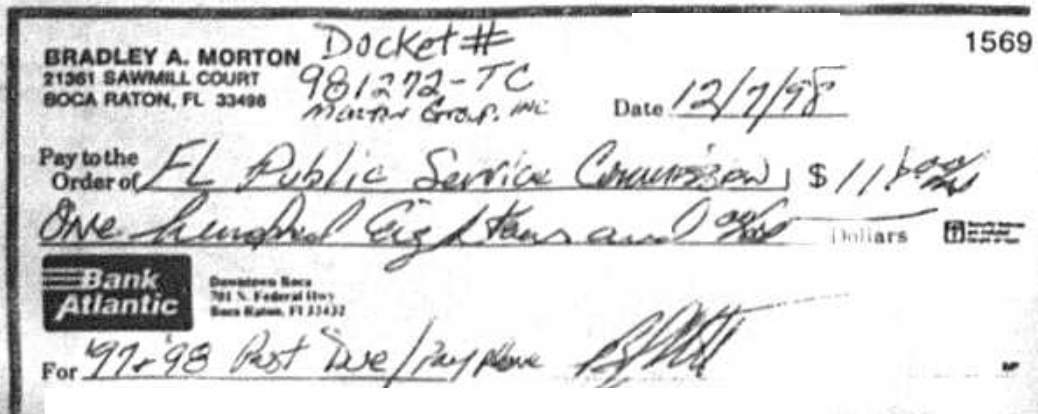 BRADLEY A. MORTON Docket# 1569
21361 SAWMILL COURT 981272-TC
BOCA RATON, FL 33498 Morton Group, INC
Date 12/7/98
Pay to the Order of FL Public Service Commission $ 118 00/100
One hundred Eighteen and 00/100 Dollars
Bank Atlantic
Downtown Boca
701 N. Federal Hwy
Boca Raton, Fl 33432
For '97-'98 Past Due/Payphone
MP